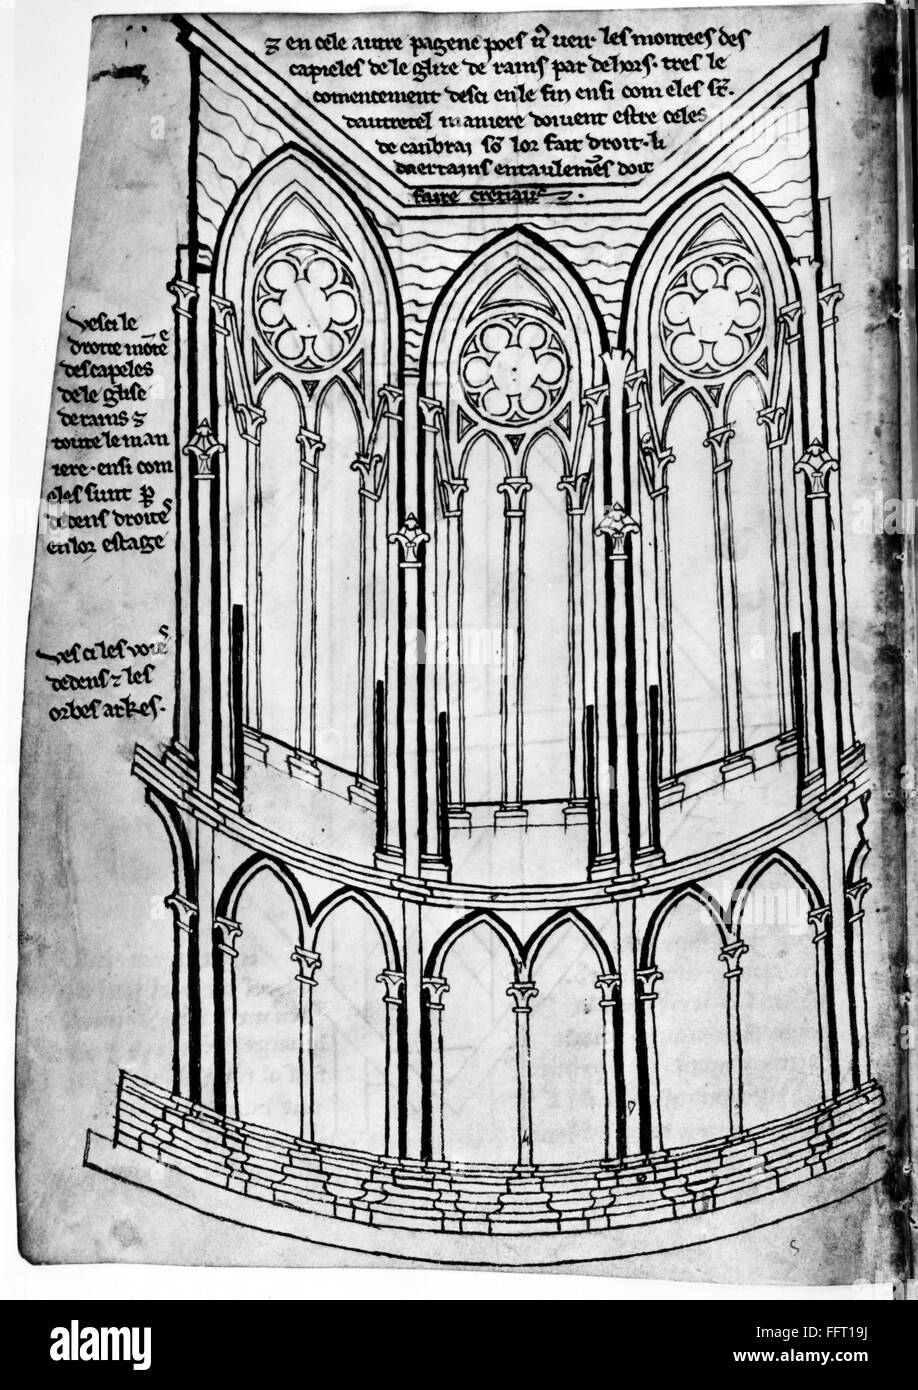 ⁊ en cele autre pagene poes vꝰ veir les montees des
capieles de le glize de rains par dehors. tres le
comencement desci en le fin ensi com eles sūt.
dautretel maniere doivent estre celes
de canbrai sō lor fait droit. li
daerrains entaulemēs doit
faire
vesci le
droite mōtee
des capeles
de le glise
de rains ⁊
toute le man
iere. ensi com
eles sunt ꝑ
dedens droites
en lor estage
ves ci les voies
dedens ⁊ les
orbes arkes.
alamy
Image ID: FFT19J
www.alamy.com